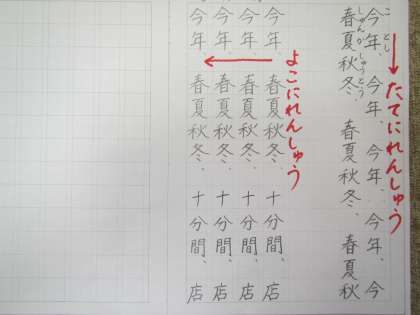 たてにれんしゅう
ことし
今年、今年、今年、今年、今
しゅんかしゅうとう
春夏秋冬、春夏秋冬、春夏秋
よこにれんしゅう
今年、春夏秋冬、十分間、店
今年、春夏秋冬、十分間、店
今年、春夏秋冬、十分間、店
今年、春夏秋冬、十分間、店